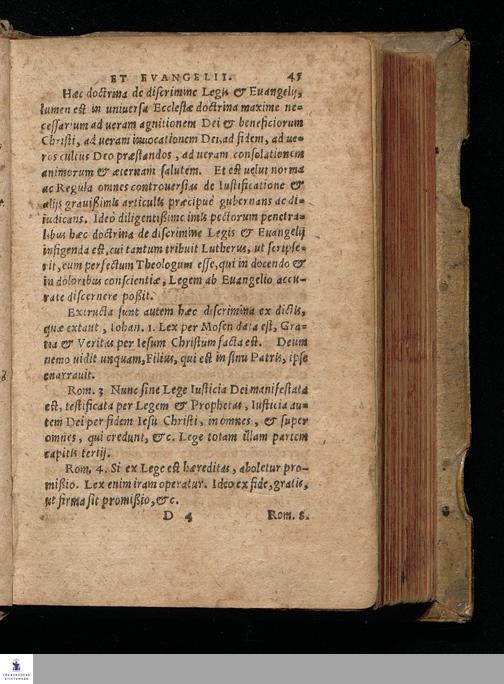 ET EVANGELII. 45
Hæc doctrina de discrimine Legis & Euangelij,
lumen est in uniuersa Ecclesiæ doctrina maxime ne-
cessarium ad ueram agnitionem Dei & beneficiorum
Christi, ad ueram inuocationem Dei, ad fidem, ad ue-
ros cultus Deo præstandos, ad ueram consolationem
animorum & æternam salutem. Et est uelut norma
ac Regula omnes controuersias de Iustificatione &
alijs grauißimis articulis præcipuè gubernans ac di-
iudicans. Ideò diligentißimè imis pectorum penetra-
libus hæc doctrina de discrimine Legis & Euangelij
infigenda est, cui tantum tribuit Lutherus, ut scripse-
rit, eum perfectum Theologum esse, qui in docendo &
in doloribus conscientiæ, Legem ab Euangelio accu-
rate discernere poßit.
Extructa sunt autem hæc discrimina ex dictis,
quæ extant, Iohan. 1. Lex per Mosen data est, Gra-
tia & Veritas per Iesum Christum facta est. Deum
nemo uidit unquam, Filius, qui est in sinu Patris, ipse
enarrauit.
Rom. 3 Nunc sine Lege Iusticia Dei manifestata
est, testificata per Legem & Prophetas, Iusticia au-
tem Dei per fidem Iesu Christi, in omnes, & super
omnes, qui credunt, &c. Lege totam illam partem
capitis tertij.
Rom. 4. Si ex Lege est hæreditas, aboletur pro-
mißio. Lex enim iram operatur. Ideo ex fide, gratis,
ut firma sit promißio, &c.
D 4 Rom. 8.
FRANCKESCHE
STIFTUNGEN